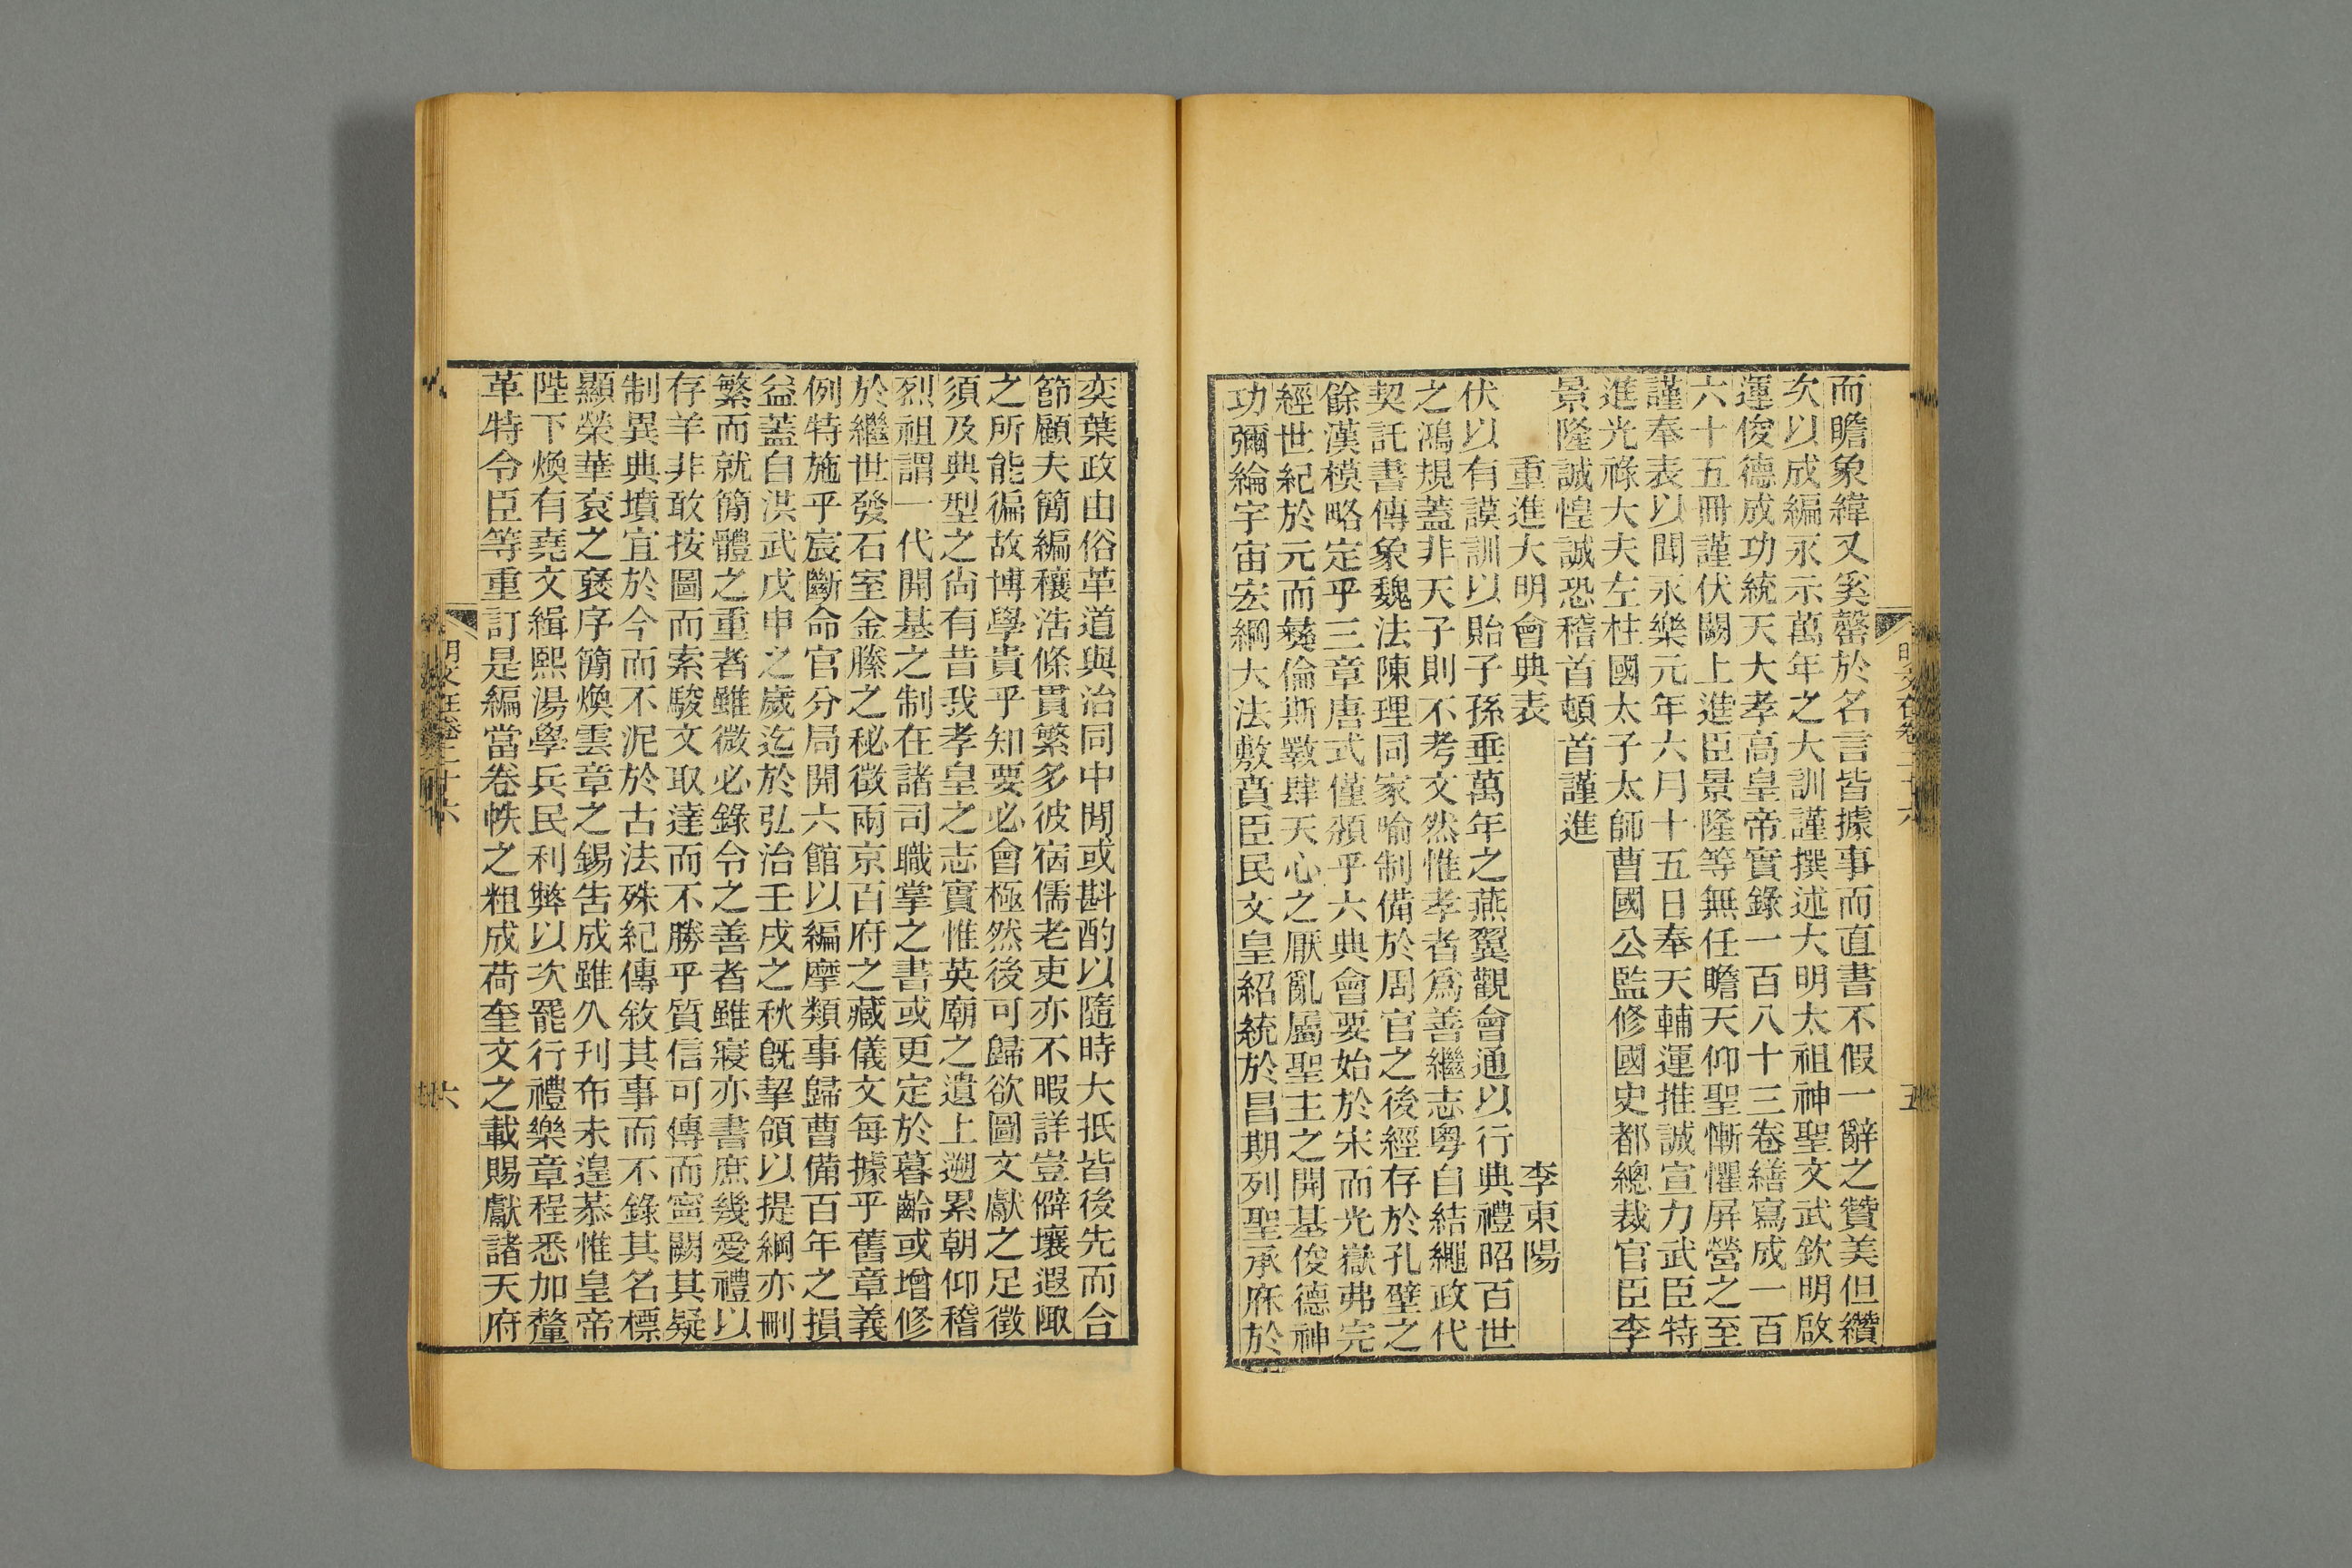 而瞻象緯又奚罄於名言皆據事而直書不假一辭之贊美但纘
次以成編永示萬年之大訓謹撰述大明太祖神聖文武欽明啟
運俊德成功統天大孝高皇帝實錄一百八十三卷繕寫成一百
六十五冊謹伏闕上進臣景隆等無任瞻天仰聖慚懼屏營之至
謹奉表以聞永樂元年六月十五日奉天輔運推誠宣力武臣特
進光祿大夫左柱國太子太師曹國公監修國史都總裁官臣李
景隆誠惶誠恐稽首頓首謹進
重進大明會典表 李東陽
伏以有謨訓以貽子孫垂萬年之燕翼觀會通以行典禮昭百世
之鴻規蓋非天子則不考文然惟孝者爲善繼志粵自結繩政代
契託書傳象魏法陳理同家喻制備於周官之後經存於孔壁之
餘漢模略定乎三章唐式僅頒乎六典會要始於宋而光嶽弗完
經世紀於元而彝倫斯斁肆天心之厭亂屬聖主之開基俊德神
功彌綸宇宙宏綱大法敷賁臣民文皇紹統於昌期列聖承庥於
奕葉政由俗革道與治同中閒或斟酌以隨時大抵皆後先而合
節顧夫簡編穰浩條貫繁多彼宿儒老吏亦不暇詳豈僻壤遐陬
之所能徧故博學貴乎知要必會極然後可歸欲圖文獻之足徵
須及典型之尙有昔我孝皇之志實惟英廟之遺上遡累朝仰稽
烈祖謂一代開基之制在諸司職掌之書或更定於暮齡或增修
於繼世發石室金縢之秘徵兩京百府之藏儀文每據乎舊章義
例特施乎宸斷命官分局開六館以編摩類事歸曹備百年之損
益蓋自洪武戊申之歲迄於弘治壬戌之秋旣挈領以提綱亦刪
繁而就簡體之重者雖微必錄令之善者雖寢亦書庶幾愛禮以
存羊非敢按圖而索駿文取達而不勝乎質信可傳而寧闕其疑
制異典墳宜於今而不泥於古法殊紀傳敘其事而不錄其名標
顯榮華袞之褒序簡煥雲章之錫告成雖久刊布未遑恭惟皇帝
陛下煥有堯文緝熙湯學兵民利弊以次罷行禮樂章程悉加釐
革特令臣等重訂是編當卷帙之粗成荷奎文之載賜獻諸天府
六